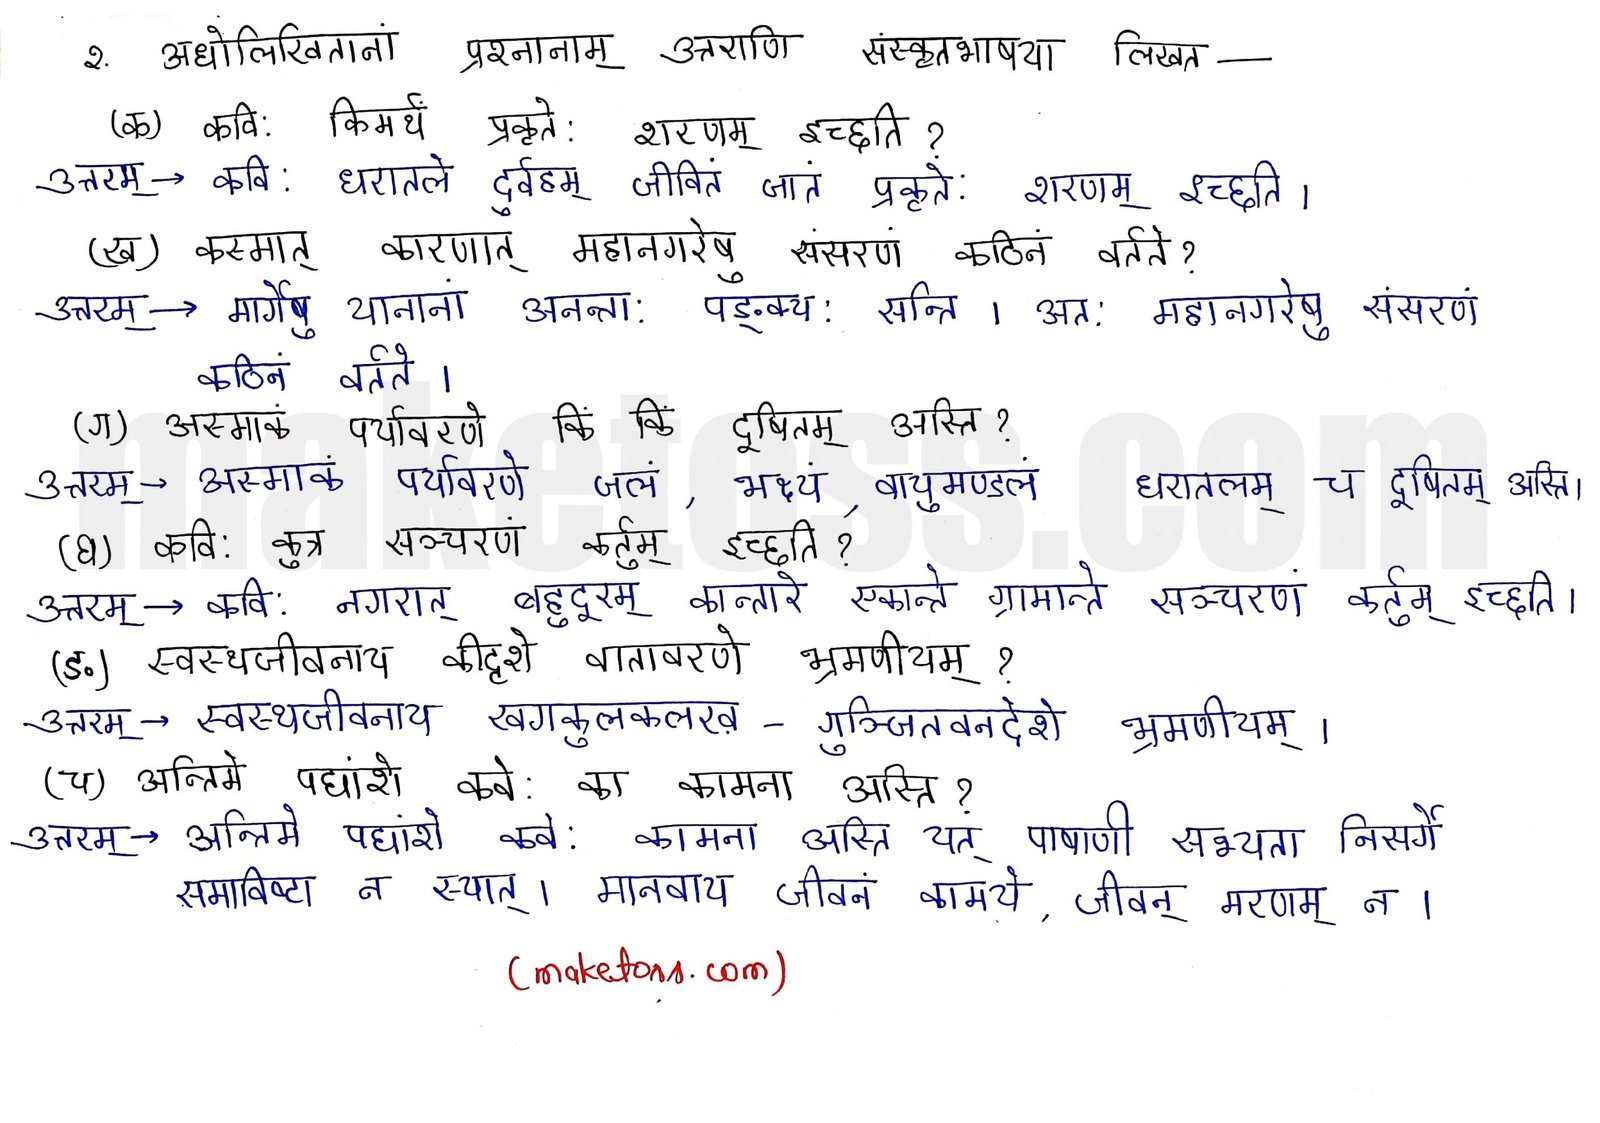 २. अधोलिखितानां प्रश्नानाम् उत्तराणि संस्कृतभाषया लिखत —
(क) कविः किमर्थं प्रकृतेः शरणम् इच्छति ?
उत्तरम् → कविः धरातले दुर्वहम् जीवितं जातं प्रकृतेः शरणम् इच्छति ।
(ख) कस्मात् कारणात् महानगरेषु संसरणं कठिनं वर्तते ?
उत्तरम् → मार्गेषु यानानां अनन्ताः पङ्क्यः सन्ति । अतः महानगरेषु संसरणं
कठिनं वर्तते ।
(ग) अस्माकं पर्यावरणे किं किं दूषितम् अस्ति ?
उत्तरम् → अस्माकं पर्यावरणे जलं , भक्ष्यं , वायुमण्डलं धरातलम् च दूषितम् अस्ति ।
(घ) कविः कुत्र सञ्चरणं कर्तुम् इच्छति ?
उत्तरम् → कविः नगरात् बहुदूरम् कान्तारे एकान्ते ग्रामान्ते सञ्चरणं कर्तुम् इच्छति ।
(ङ) स्वस्थजीवनाय कीदृशे वातावरणे भ्रमणीयम् ?
उत्तरम् → स्वस्थजीवनाय खगकुलकलरव - गुञ्जितवनदेशे भ्रमणीयम् ।
(च) अन्तिमे पद्यांशे कवेः का कामना अस्ति ?
उत्तरम् → अन्तिमे पद्यांशे कवेः कामना अस्ति यत् पाषाणी सभ्यता निसर्गे
समाविष्टा न स्यात् । मानवाय जीवनं कामये , जीवन् मरणम् न ।
(maketoss.com)
maketoss.com